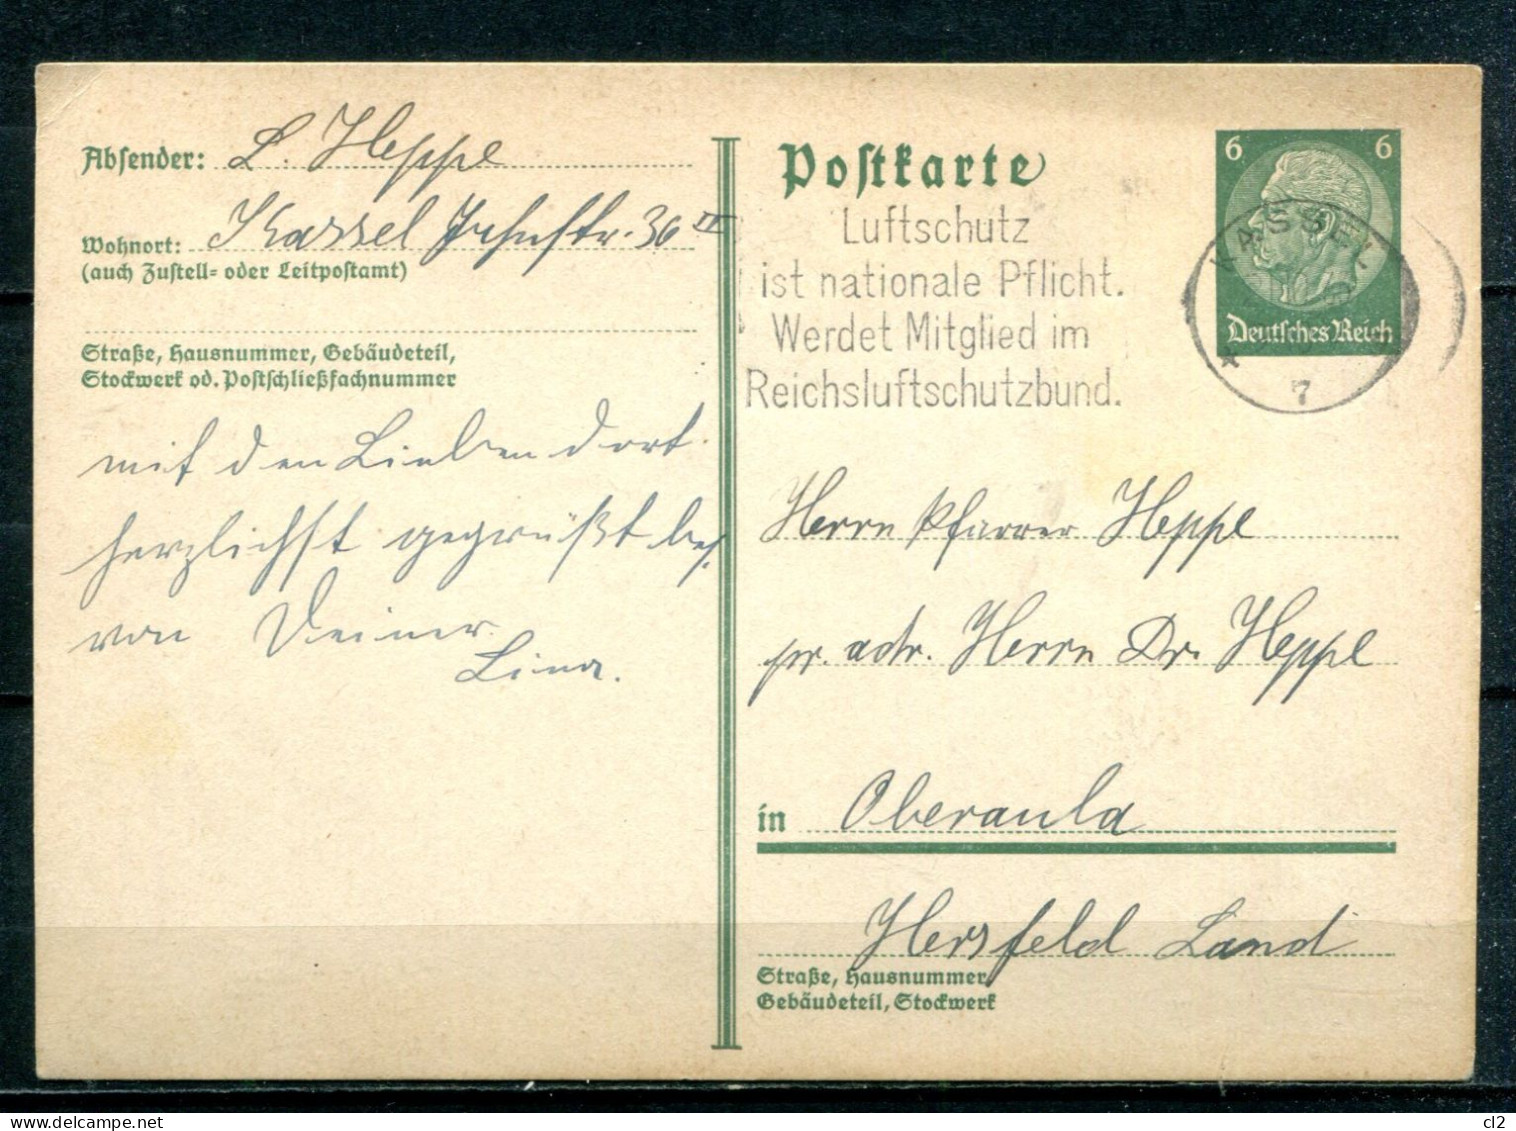 Absender: L. Heppe
Wohnort: Kassel Jahnstr. 36 IV
(auch Zustell- oder Leitpostamt)
Straße, Hausnummer, Gebäudeteil,
Stockwerk od. Postschließfachnummer
mit den Lieben dort
herzlichst gegrüßt bes.
von Deiner
Lina.
Postkarte
Luftschutz
ist nationale Pflicht.
Werdet Mitglied im
Reichsluftschutzbund.
6 6
Deutsches Reich
KASSEL
7
Herrn Pfarrer Heppe
pr. adr. Herrn Dr. Heppe
in Oberaula
Hersfeld Land
Straße, Hausnummer,
Gebäudeteil, Stockwerk
cl2